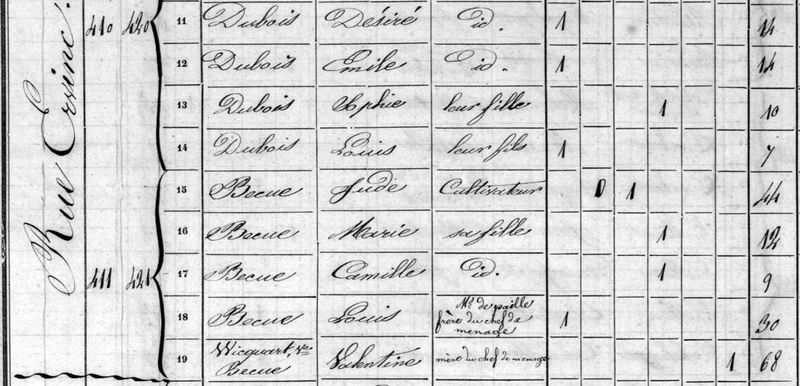 Rue Ervinc.
410 420 11 Dubois Désiré id. 1 14
12 Dubois Emile id. 1 14
13 Dubois Sophie leur fille 1 10
14 Dubois Louis leur fils 1 7
15 Becue Jude Cultivateur D 1 44
16 Becue Marie sa fille 1 12
411 421 17 Becue Camille id. 1 9
18 Becue Louis Md. de paille
frère du chef de
ménage 1 30
19 Wicquart, Ve
Becue Valentine mère du chef de ménage 1 68